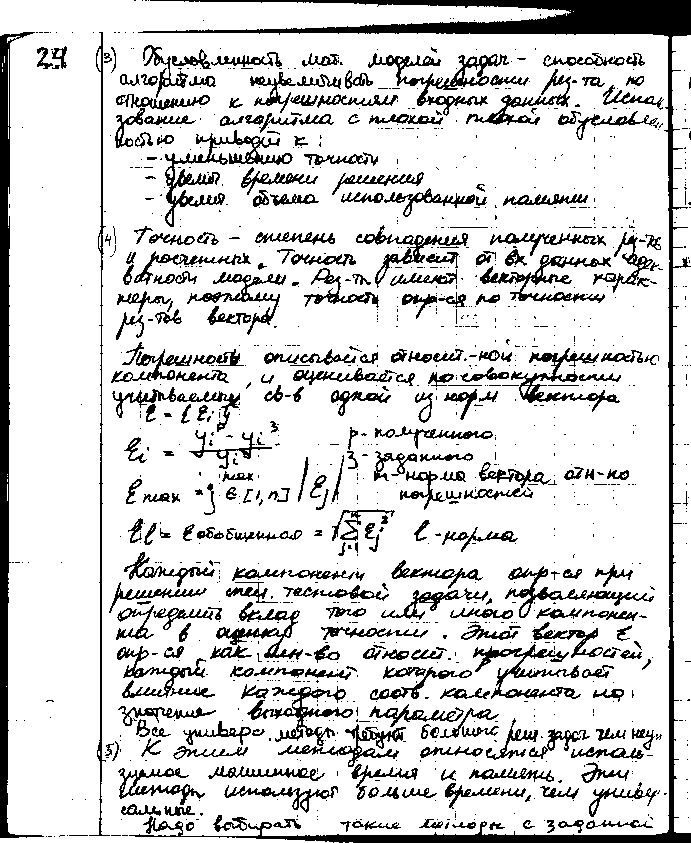 24 (3) Обусловленность мат. моделей задач – способность
алгоритма неувеличивать погрешности рез-та по
отношению к погрешностям входных данных. Исполь-
зование алгоритма с плохой плохой обусловлен
ностью приводит к:
- уменьшению точности
- увелич. времени решения
- увелич. объема использованной памяти
(4) Точность – степень совпадения полученных рез-тв
и расчетных. Точность зависит от вх данных, адек-
ватности модели. Рез-ты имеют векторные харак-
теры, поэтому точность опр-ся по точности
рез-тов вектора.
Погрешность описывается относит.-ной погрешностью
компонента, и оценивается по совокупности
учитываемых св-в одной из норм вектора
Ɛ = {Ɛi}
Ɛi = (yiᵖ - yiᶾ) / yiᶾ p - полученного
з - заданного
Ɛmax = max j∈[1,n] |Ɛj| m - норма вектора отн-но
погрешностей
Ɛℓ = Ɛ обобщенная = √∑ Ɛj² ℓ - норма
Каждый компонент вектора опр-ся при
решении тестовой задачи, позволяющий
определить вклад того или иного компонен-
та в оценку точности. Этот вектор Ɛ
опр-ся как мн-во относит. погрешностей,
каждый компонент которого учитывает
влияние каждого соотв. компонента на
значение выходного параметра
Все универс. методы требуют большего реш. задач чем неун
(5) К этим методам относятся исполь-
зуемое машинное время и память. Эти
методы используют больше времени, чем универ-
сальные.
Надо выбирать такие методы с заданной